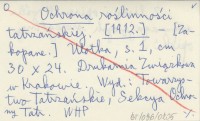 Ochrona roślinności
tatrzańskiej. [1912.] - [Za-
kopane.] Ulotka, s. 1, cm
30 x 24. Drukarnia Związkowa
w Krakowie. Wyd.: Towarzys-
two Tatrzańskie, Sekcja Ochro-
ny Tatr. WHP